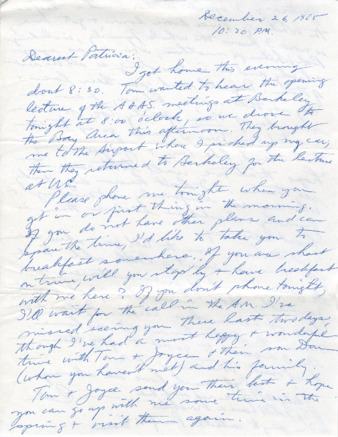 December 26, 1965
10:30 PM
Dearest Patricia:
I got home this evening
about 8:30. Tom wanted to hear the opening
lecture of the AAAS meetings at Berkeley
tonight at 8:00 o'clock, so we drove to
the Bay Area this afternoon. They brought
me to the airport where I picked up my car,
then they returned to Berkeley for the lecture
at UC.
Please phone me tonight when you
get in or first thing in the morning.
If you do not have other plans and can
spare the time, I'd like to take you to
breakfast somewhere. If you are short
on time, will you stop by & have breakfast
with me here? If you don't phone tonight,
I'll wait for the call in the AM. I've
missed seeing you these last two days,
though I've had a most happy & wonderful
time with Tom & Joyce & their son
(whom you haven't met) and his family.
Tom & Joyce send you their best & hope
you can go up with me some time in the
spring & visit them again.